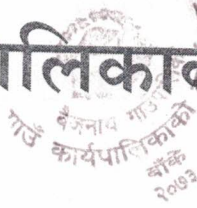 ालिकाक
बैजनाथ गाउँ
गाउँ कार्यपालिकाको
बाँके
२०७३